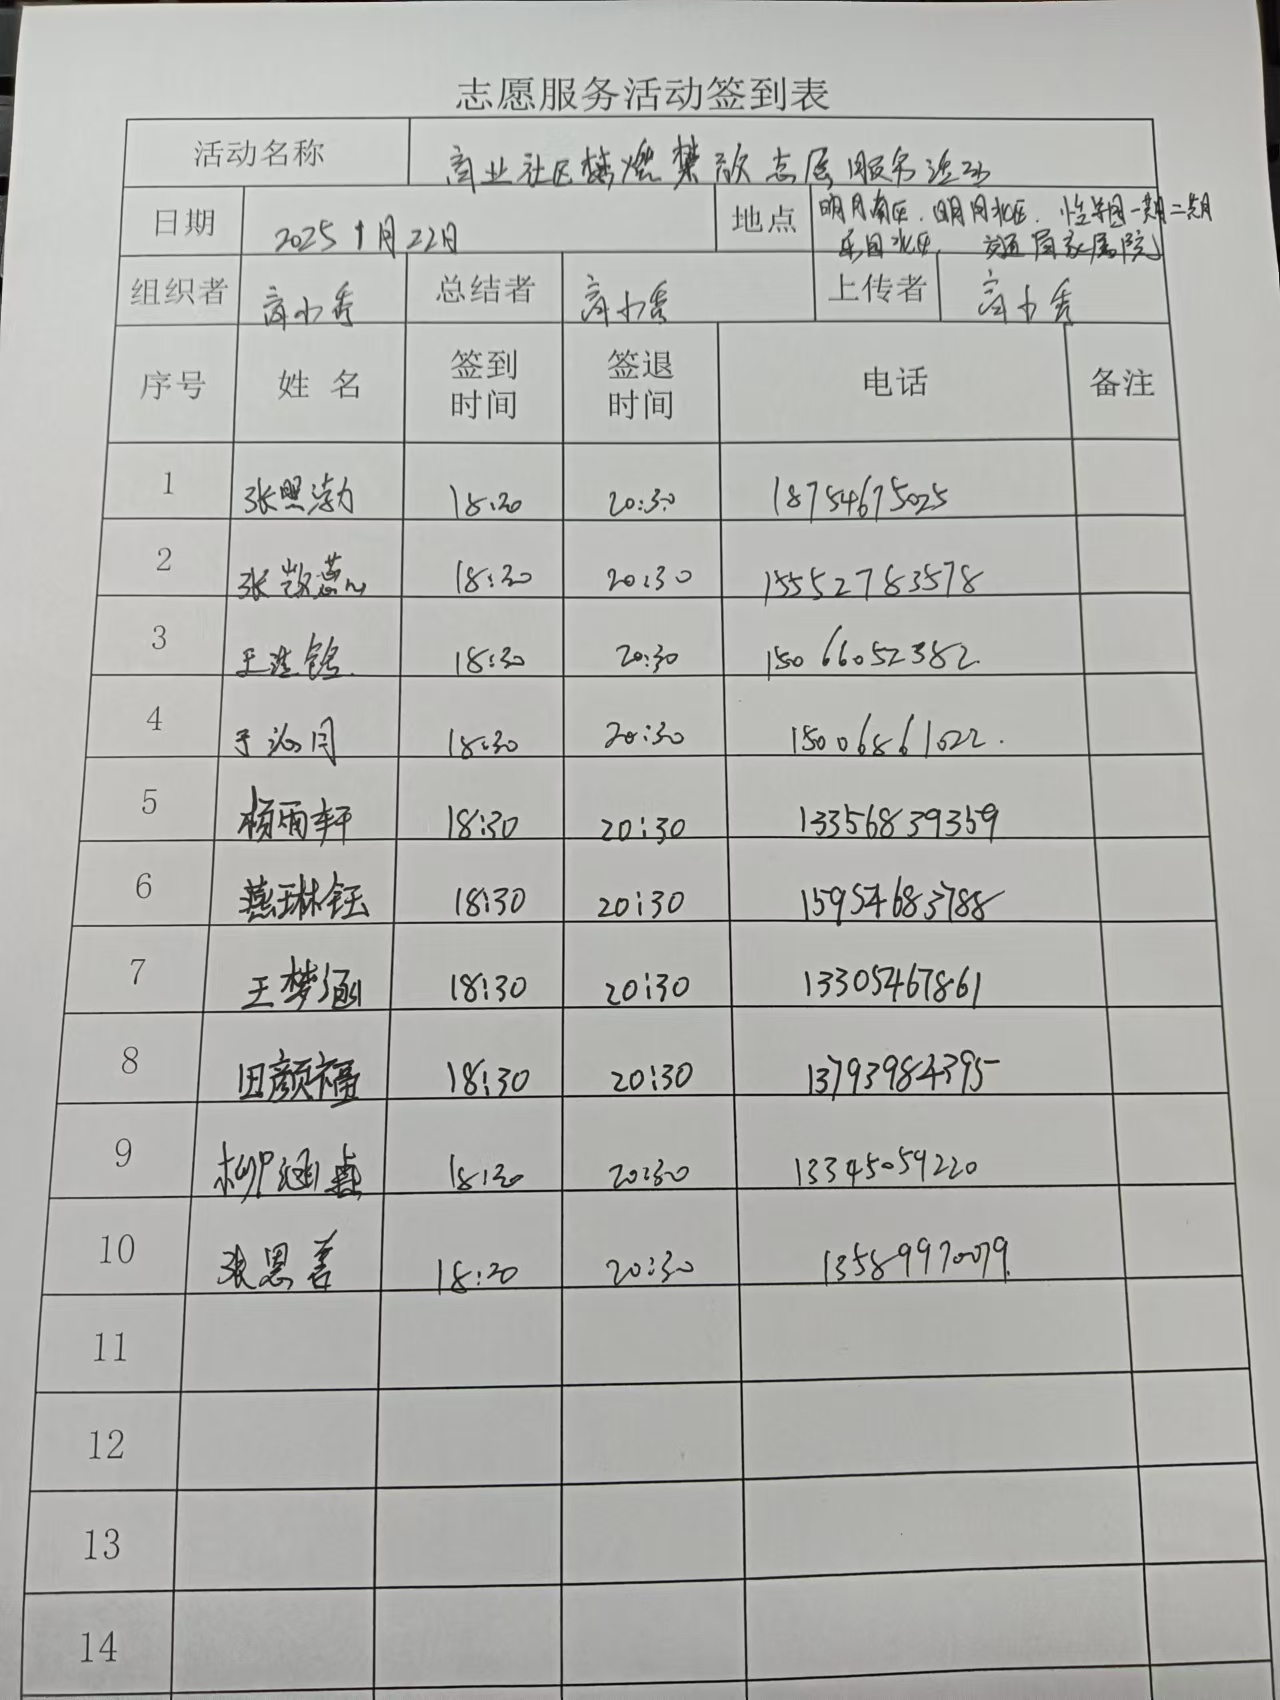 志愿服务活动签到表
活动名称 商业社区禁燃禁放志愿服务活动
日期 2025年1月22日 地点 明月南区.明月北区.怡羊园一期二期
乐园北区. 交通局家属院
组织者 高小秀 总结者 高小秀 上传者 高小秀
序号 姓名 签到时间 签退时间 电话 备注
1 张照渤 18:30 20:30 18754675025
2 张 18:30 20:30 15552783578
3 王 18:30 20:30 15066052382
4 于 18:30 20:30 15006861022
5 杨雨轩 18:30 20:30 13356839359
6 燕琳钰 18:30 20:30 15954683788
7 王梦涵 18:30 20:30 13305467861
8 田颜福 18:30 20:30 13793984395
9 柳涵 18:30 20:30 13345059220
10 张恩善 18:30 20:30 13589970079
11
12
13
14